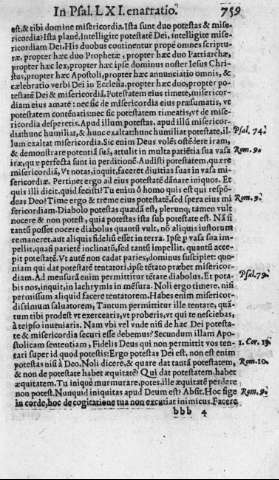 In Psal. LXI. enarratio. 759
est, & tibi domine misericordia. Ista sunt duo potestas & mise-
ricordia: Ista planè. Intelligite potestatẽ Dei, intelligite mise-
ricordiam Dei. His duobus continentur propè omnes scriptu-
ræ. propter hæc duo Prophetæ: propter hæc duo Patriarchæ,
propter hæc lex, propter hæc ipse dominus noster Iesus Chri-
stus, propter hæc Apostoli, propter hæc annunciatio omnis, &
celebratio verbi Dei in Ecclesia. propter hæc duo, propter po-
testatẽ Dei & misericordiã. Potestatem eius timete, misericor-
diam eius amate: nec sic de misericordia eius præsumatis, vt
potestatem contemnatis: nec sic potestatem timeatis, vt de mise-
ricordia desperetis. Apud illum potestas. apud illũ misericor-
dia: hunc humiliat, & hunc exaltat: hunc humiliat potestate, il-
lum exaltat misericordia. Sic enim Deus volẽs ostẽdere iram,
& demonstrare potentiã suã, attulit in multa patiẽtia sua vasa
iræ, quæ perfecta sunt in perditionẽ. Audisti potestatem, quære
misericordiã. Vt notas, inquit, faceret diuitias suas in vasa mi-
sericordiæ. Pertinet ergo ad eius potestatẽ dãnare iniquos. Et
quis illi dicit, quid fecisti? Tu enim ô homo quis es qui respõ-
deas Deo? Time ergo & treme eius potestatẽ, sed spera eius mi
sericordiam. Diabolo potestas quædã est, plerunq; tamen vult
nocere & non potest, quia potestas ista sub potestate est. Nã si
tantũ posset nocere diabolus quantũ vult, nõ aliquis iustorum
remaneret, aut aliquis fideliũ esset in terra. Ipse p vasa sua im-
pellit, quasi parietẽ inclinatũ, sed tantũ impellit, quantũ acce-
pit potestatẽ. Vt autẽ non cadat paries, dominus suscipiet: quo
niam qui dat potestatẽ tentatori, ipse tẽtato præbet misericor-
diam. Ad mensurã enim permittitur tẽtare diabolus. Et pota-
bis nos, inquit, in lachrymis in mẽsura. Noli ergo timere, nisi
permissum aliquid facere tentatorem. Habes enim misericor-
dissimum saluatorem. Tantum permittitur ille tentare, quã-
tum tibi prodest vt exercearis, vt proberis, vt qui te nesciebas,
à teipso inueniaris. Nam vbi vel vnde nisi de hac Dei potesta-
te & misericordia securi esse debemus? Secundum illam Apo-
stolicam sententiam, Fidelis Deus qui non permittit vos ten-
tari super id quod potestis: Ergo potestas Dei est, non est enim
potestas nisi à Deo. Noli dicere, & quare dat tantã potestatem,
& non de potestate habet æquitatẽ? Qui dat potestatem, habet
æquitatem. Tu iniquè murmurare potes, ille æquitatẽ perdere
non potest. Nunquid iniquitas apud Deum est? Absit. Hoc fige
in corde, hoc de cogitatione tua non excutiat inimicus. Facere
bbb 4
Psal. 74.
Rom. 9.
Rom. 9.
Psal. 79.
1. Cor. 10.
Rom. 10.
Rom. 9.